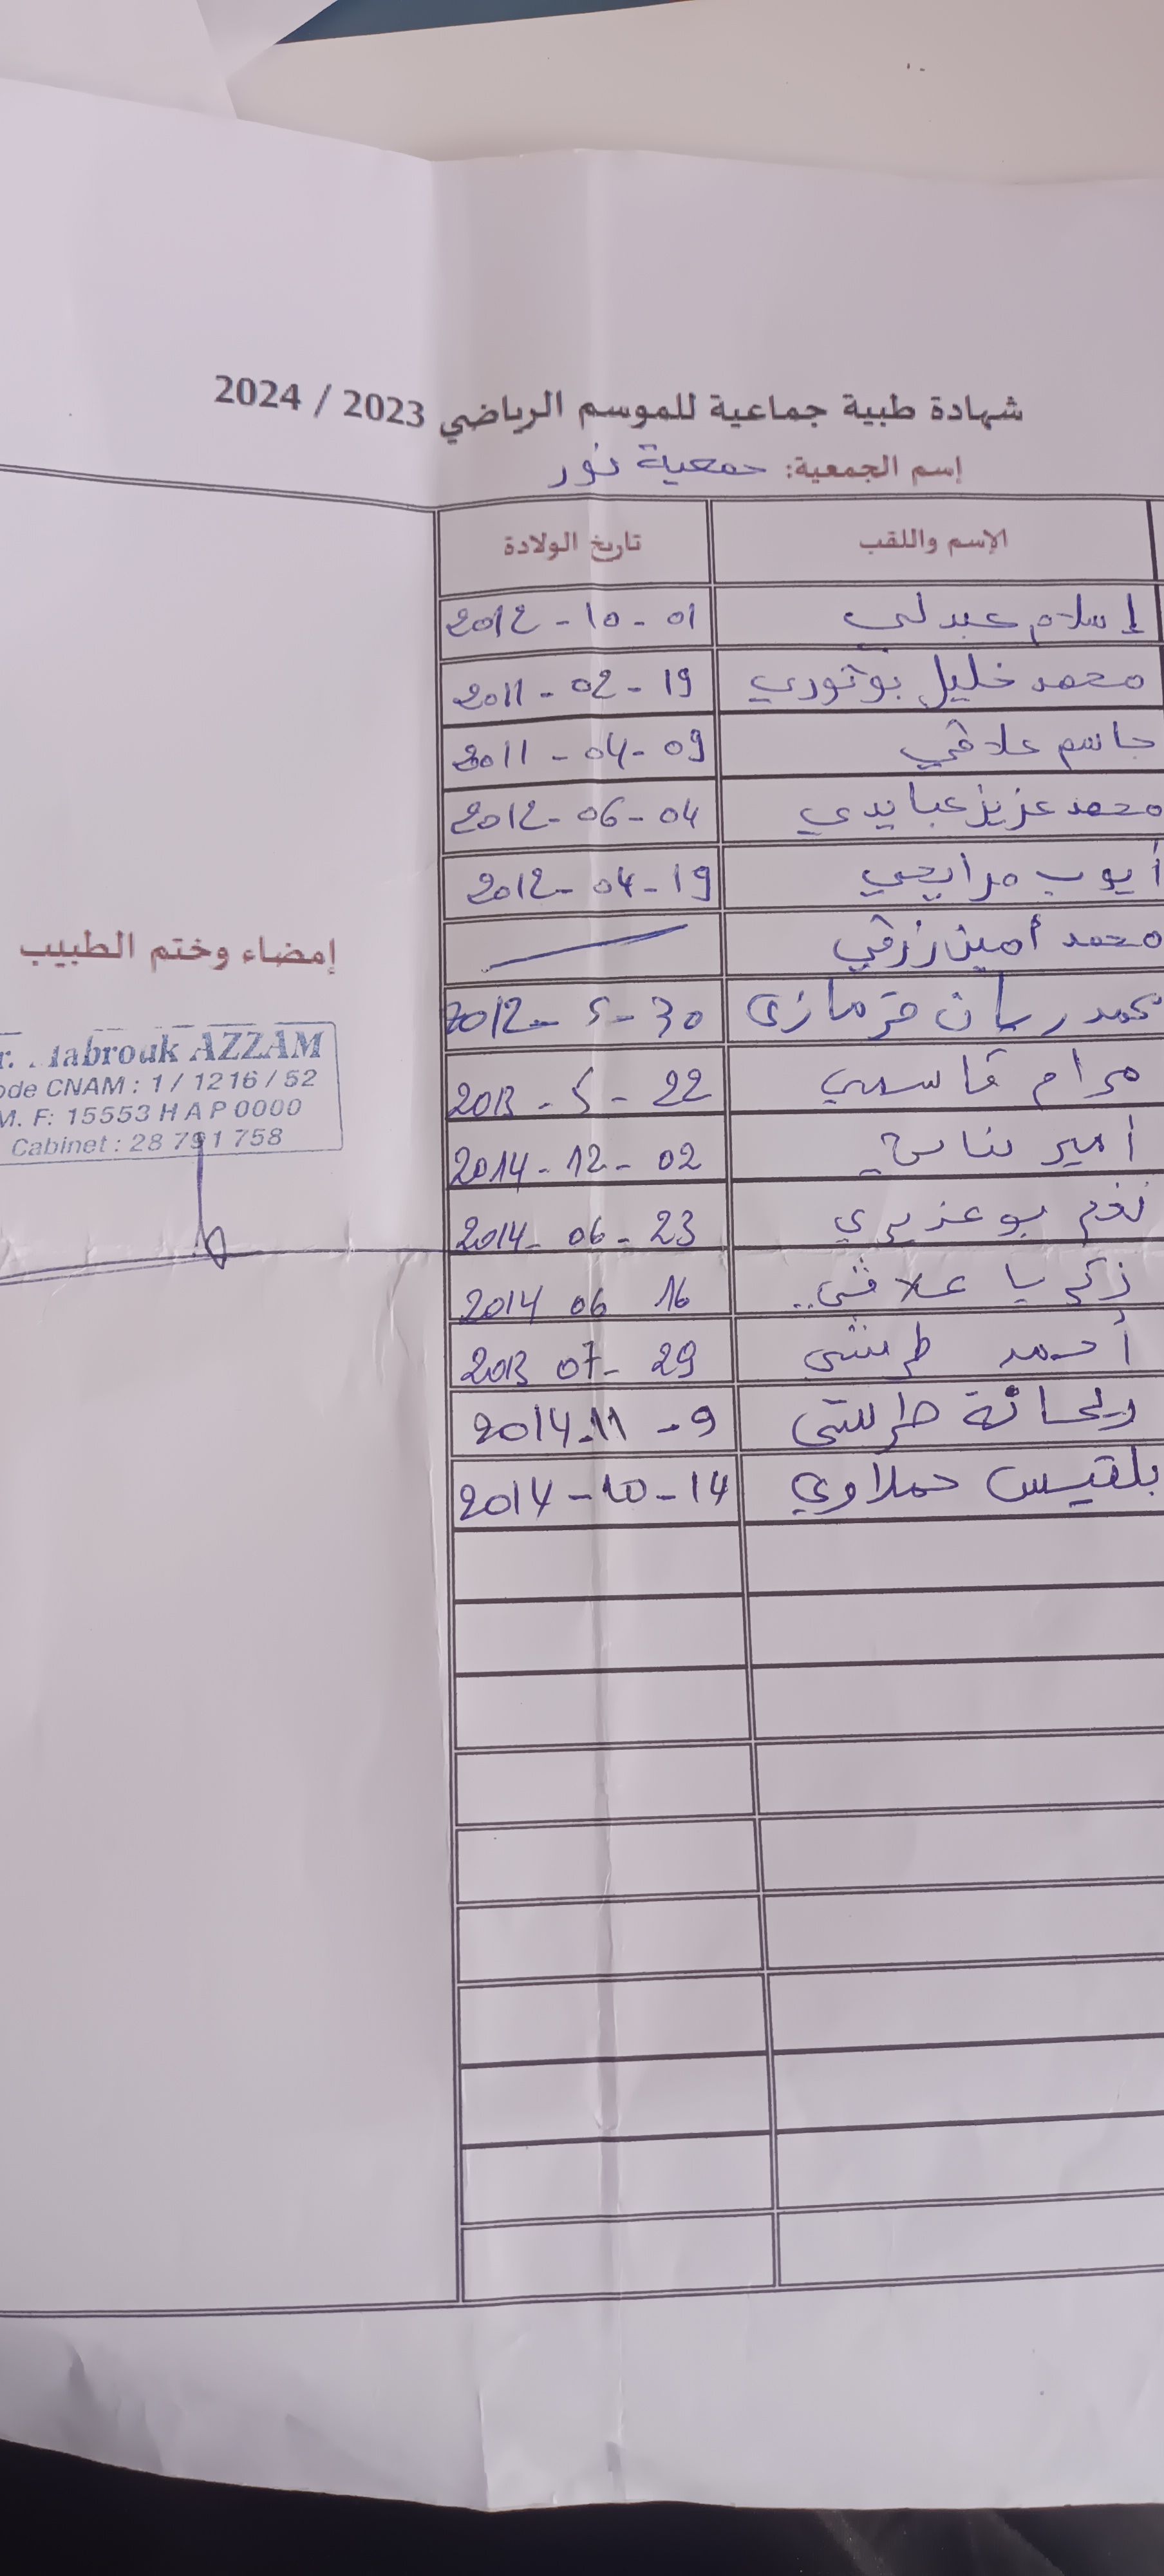 شهادة طبية جماعية للموسم الرياضي 2023 / 2024
إسم الجمعية: جمعية نور
الإسم واللقب تاريخ الولادة
إسلام عبدلي 2012 - 10 - 01
محمد خليل بوثوري 2011 - 02 - 19
جاسم علاقي 2011 - 04 - 09
محمد عزيز عبايدي 2012 - 06 - 04
أيوب مرايحي 2012 - 04 - 19
محمد أمين زرقي
محمد ريان قرمازي 2012 - 5 - 30
مرام قاسمي 2013 - 5 - 22
أمير 2014 - 12 - 02
نغم بوعزيزي 2014 - 06 - 23
زكريا علاقي 2014 06 16
أحمد طرشي 2013 07 - 29
ريحانة طرشي 2014 - 11 - 9
بلقيس حملاوي 2014 - 10 - 14
إمضاء وختم الطبيب
r. .abrouk AZZAM
ode CNAM : 1 / 1216 / 52
M. F: 15553 H A P 0000
Cabinet : 28 791 758